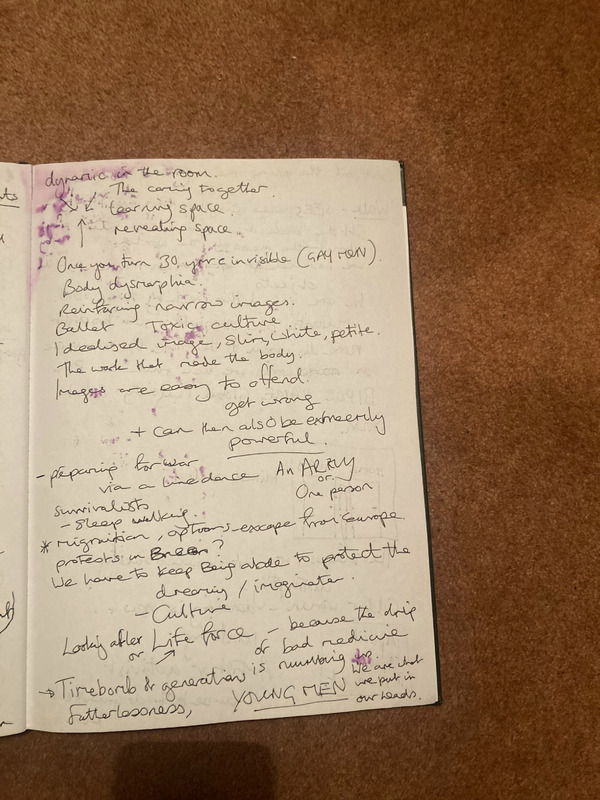 dynamic in the room.
The caring together.
learning space.
revealing space.
Once you turn 30, you're invisible (GAY MEN).
Body dysmorphia.
Reinforcing narrow images.
Ballet Toxic culture
Idealised image, Slim, white, petite.
The work that made the body.
Images are easy to offend.
get wrong
+ can then also be extremely
powerful.
- preparing for war
via a line dance An ARMY
or
One person
survivalists
- Sleep walking.
* migration, options - escape from Europe
protests in ?
We have to keep Being able to protect the
dreaming / imagination.
- Culture
Looking after Life force - because the drip
or of bad medicine
is numbing us.
→ Timebomb generation
Fatherlessness, YOUNG MEN
We are what
we put in
our heads.
ts